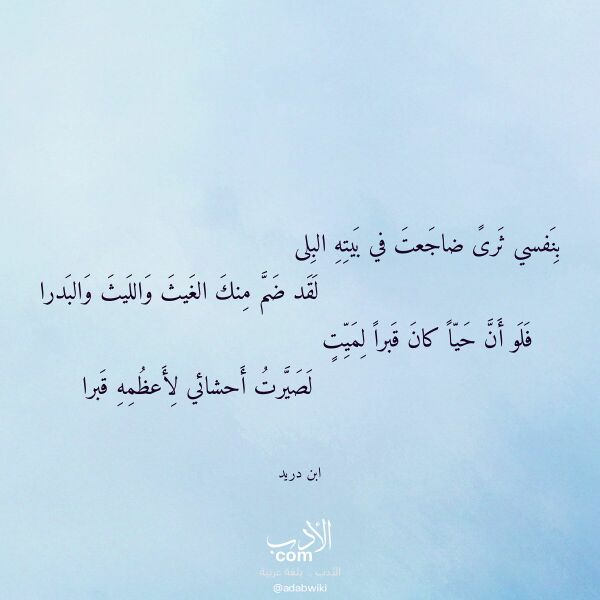 بِنَفسي ثَرىً ضاجَعتَ في بَيتِهِ البِلى
لَقَد ضَمَّ مِنكَ الغَيثَ وَاللَيثَ وَالبَدرا
فَلَو أَنَّ حَيّاً كانَ قَبراً لِمَيِّتٍ
لَصَيَّرتُ أَحشائي لِأَعظُمِهِ قَبرا
ابن دريد
الأدب
com
الأدب .. بلغة عربية
@adabwiki